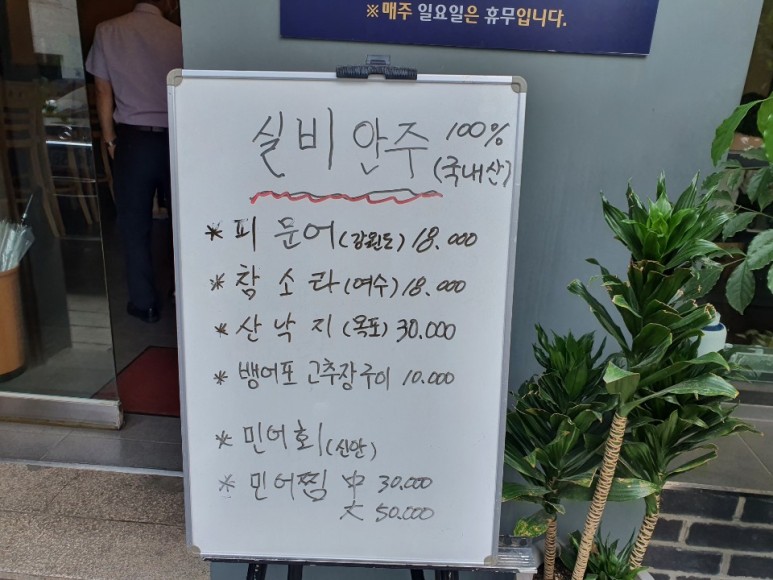 ※매주 일요일은 휴무입니다.
실비 안주 100%
(국내산)
* 피문어 (강원도) 18.000
* 참소라 (여수) 18.000
* 산낙지 (목포) 30.000
* 뱅어포 고추장구이 10.000
* 민어회 (신안)
* 민어찜 中 30.000
大 50.000